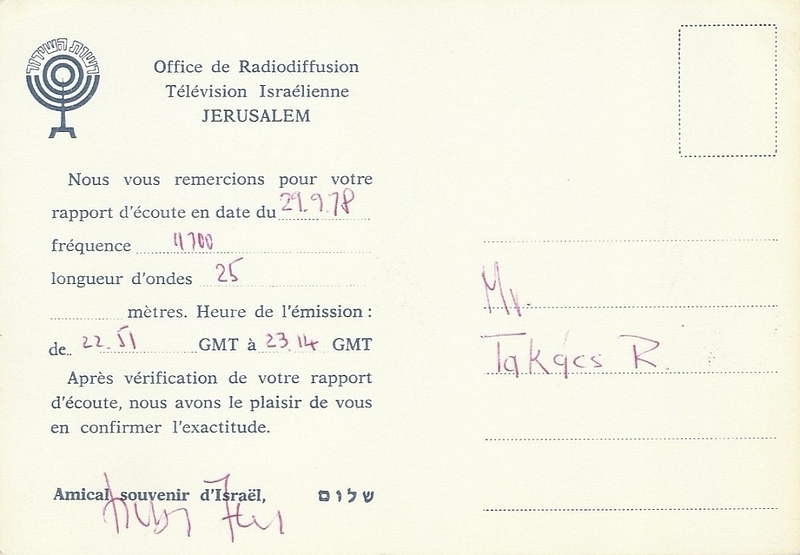 רשות השידור
Office de Radiodiffusion
Télévision Israélienne
JERUSALEM
Nous vous remercions pour votre
rapport d'écoute en date du 29.9.78
fréquence 11700
longueur d'ondes 25
mètres. Heure de l'émission :
de 22.51 GMT à 23.14 GMT
Après vérification de votre rapport
d'écoute, nous avons le plaisir de vous
en confirmer l'exactitude.
Amical souvenir d'Israël, שלום
Mr.
Takács R.